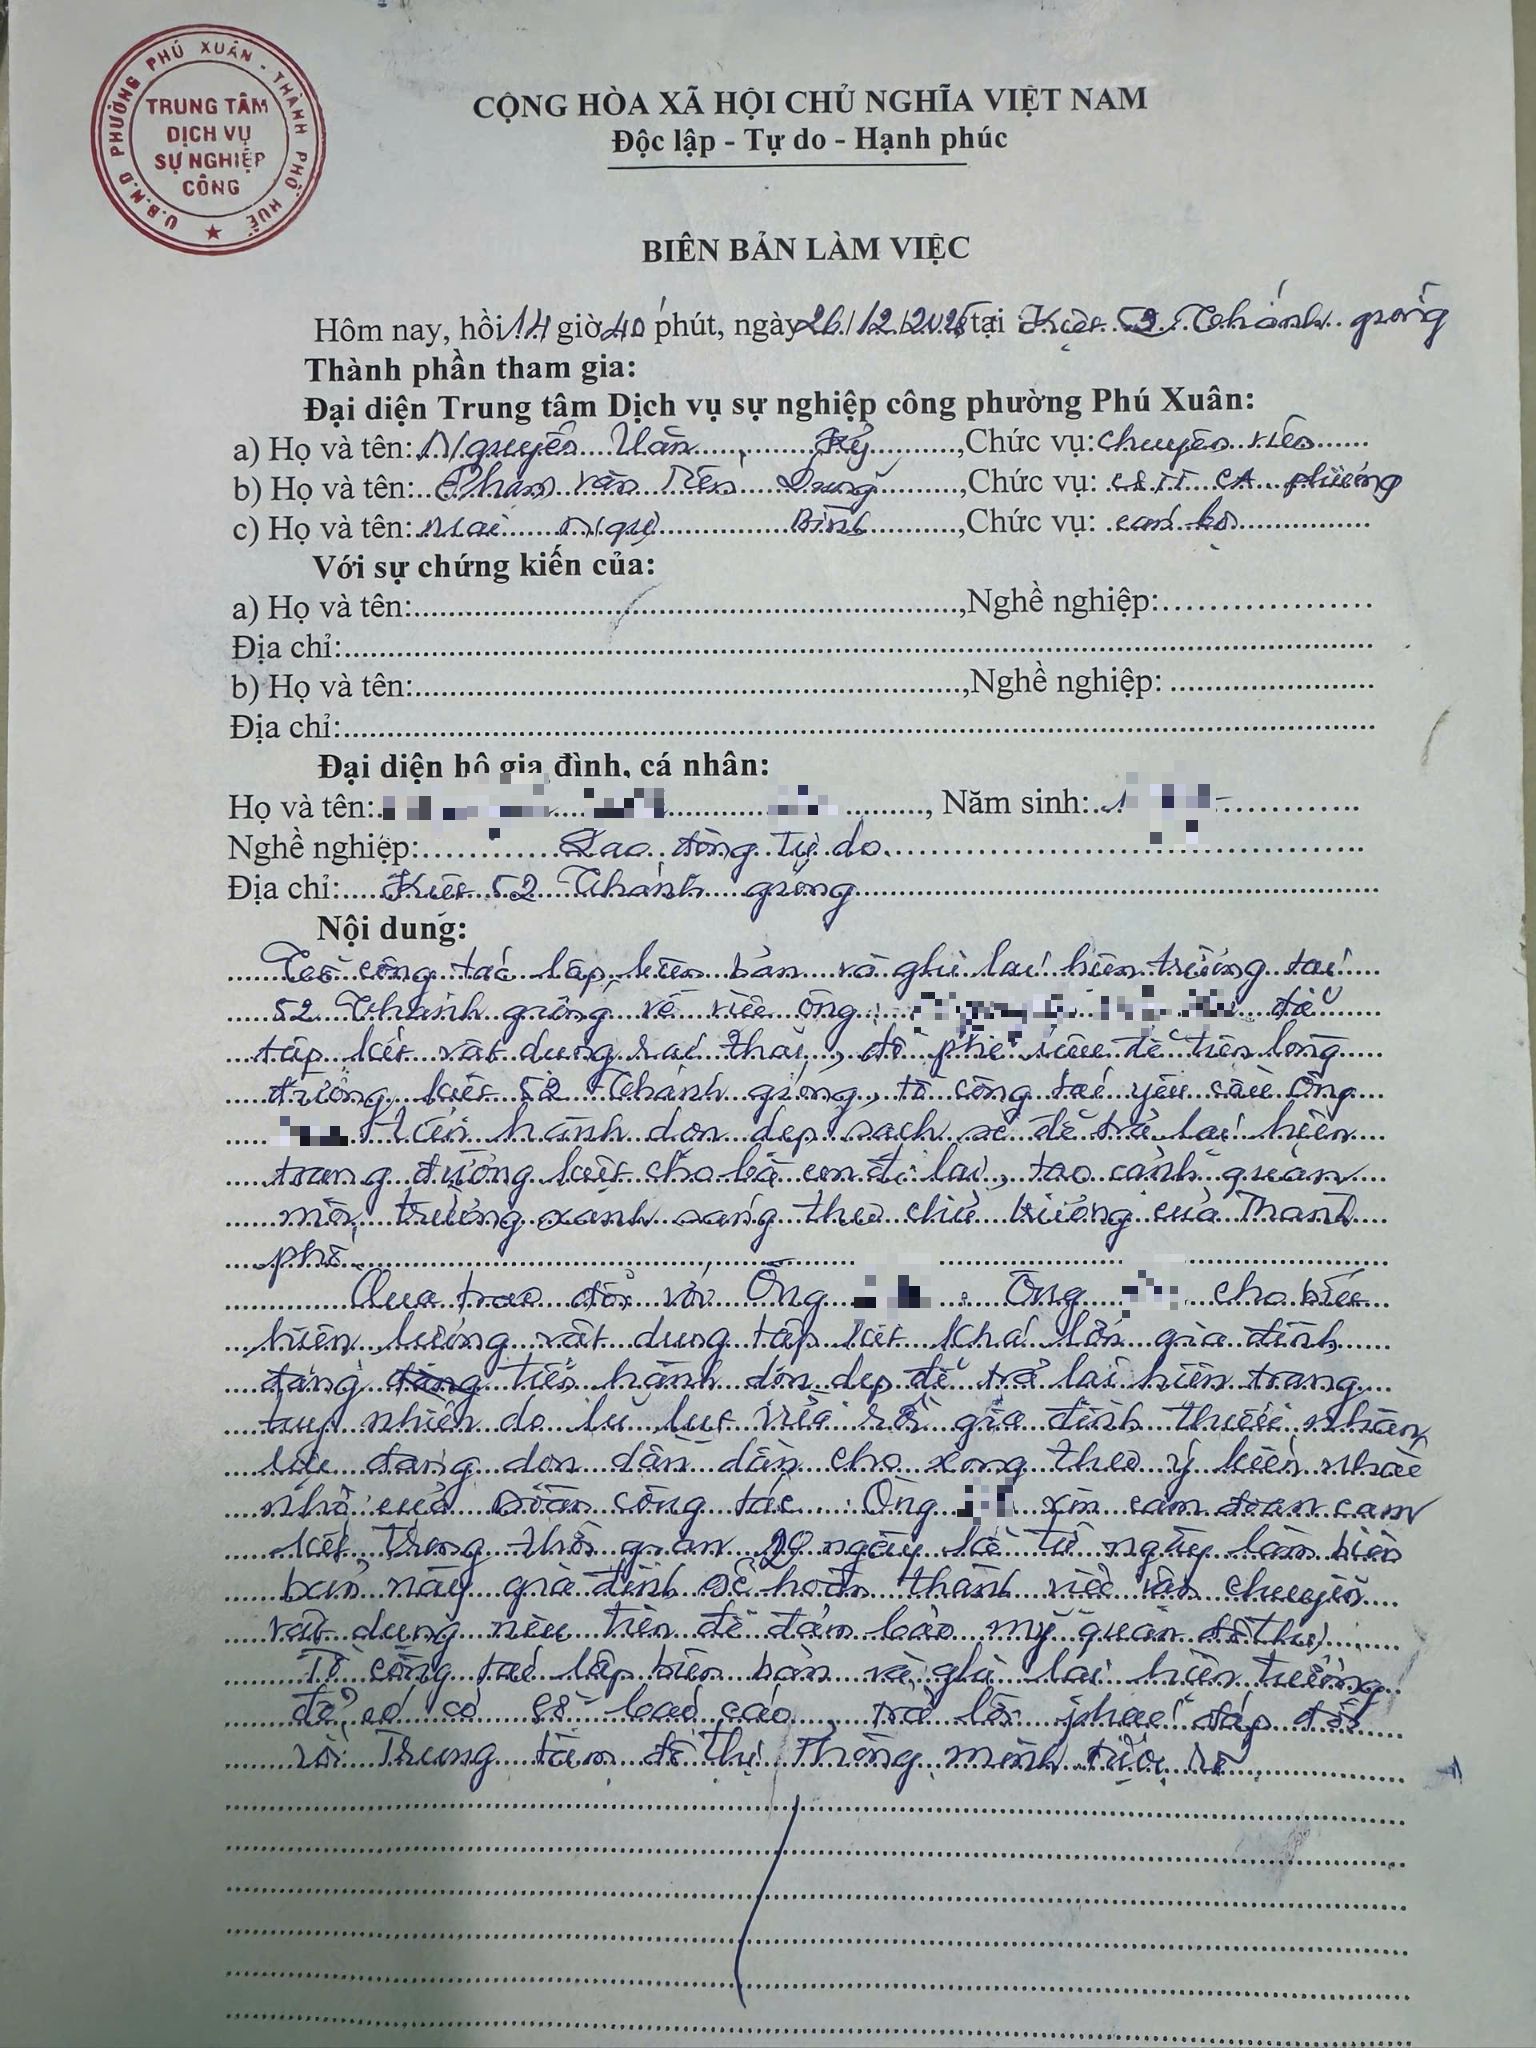 U.B.N.D PHƯỜNG PHÚ XUÂN - THÀNH PHỐ HUẾ
TRUNG TÂM
DỊCH VỤ
SỰ NGHIỆP
CÔNG
CỘNG HÒA XÃ HỘI CHỦ NGHĨA VIỆT NAM
Độc lập - Tự do - Hạnh phúc
BIÊN BẢN LÀM VIỆC
Hôm nay, hồi 14 giờ 40 phút, ngày 26/12/2025 tại Kiệt 52 Thánh gióng
Thành phần tham gia:
Đại diện Trung tâm Dịch vụ sự nghiệp công phường Phú Xuân:
a) Họ và tên: Nguyễn Văn Kỷ, Chức vụ: chuyên viên
b) Họ và tên: Phạm văn Tiến Dũng, Chức vụ: CSTT CA phường
c) Họ và tên: mai Ngọ Bình, Chức vụ: cán bộ
Với sự chứng kiến của:
a) Họ và tên:, Nghề nghiệp:
Địa chỉ:
b) Họ và tên:, Nghề nghiệp:
Địa chỉ:
Đại diện hộ gia đình, cá nhân:
Họ và tên:, Năm sinh: 1
Nghề nghiệp: Lao động tự do
Địa chỉ: Kiệt 52 Thánh gióng
Nội dung:
Tổ công tác lập biên bản và ghi lại hiện trường tại
52 Thánh gióng về việc ông để
tập kết vật dụng rác thải, đồ phế liệu để trên lòng
đường kiệt 52 Thánh gióng, tổ công tác yêu cầu Ông
tiến hành dọn dẹp sạch sẽ để trả lại hiện
trạng đường kiệt cho bà con đi lại, tạo cảnh quan
môi trường xanh sáng theo chủ trương của Thành
phố.
Qua trao đổi với Ông. Ông cho biết
hiện lượng vật dụng tập kết khá lớn gia đình
đang tiến hành dọn dẹp để trả lại hiện trạng
tuy nhiên do lũ lụt vừa rồi gia đình thiếu nhân
lực đang dọn dần dần cho xong theo ý kiến nhắc
nhở của Đoàn công tác. Ông xin cam đoan cam
kết trong thời gian 20 ngày kể từ ngày làm biên
bản này gia đình sẽ hoàn thành việc vận chuyển
vật dụng nêu trên để đảm bảo mỹ quan đô thị.
Tổ công tác lập biên bản và ghi lại hiện trường
để có cơ sở báo cáo, trả lời phúc đáp đối
với Trung tâm đô thị Thông minh được rõ